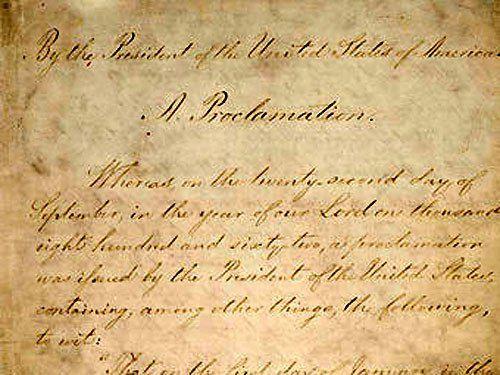 By the President of the United States of America
A Proclamation.
Whereas, on the twenty-second day of
September, in the year of our Lord one thousand
eight hundred and sixty-two, a proclamation
was issued by the President of the United States,
containing, among other things, the following,
to wit:
"That on the first day of January, in the